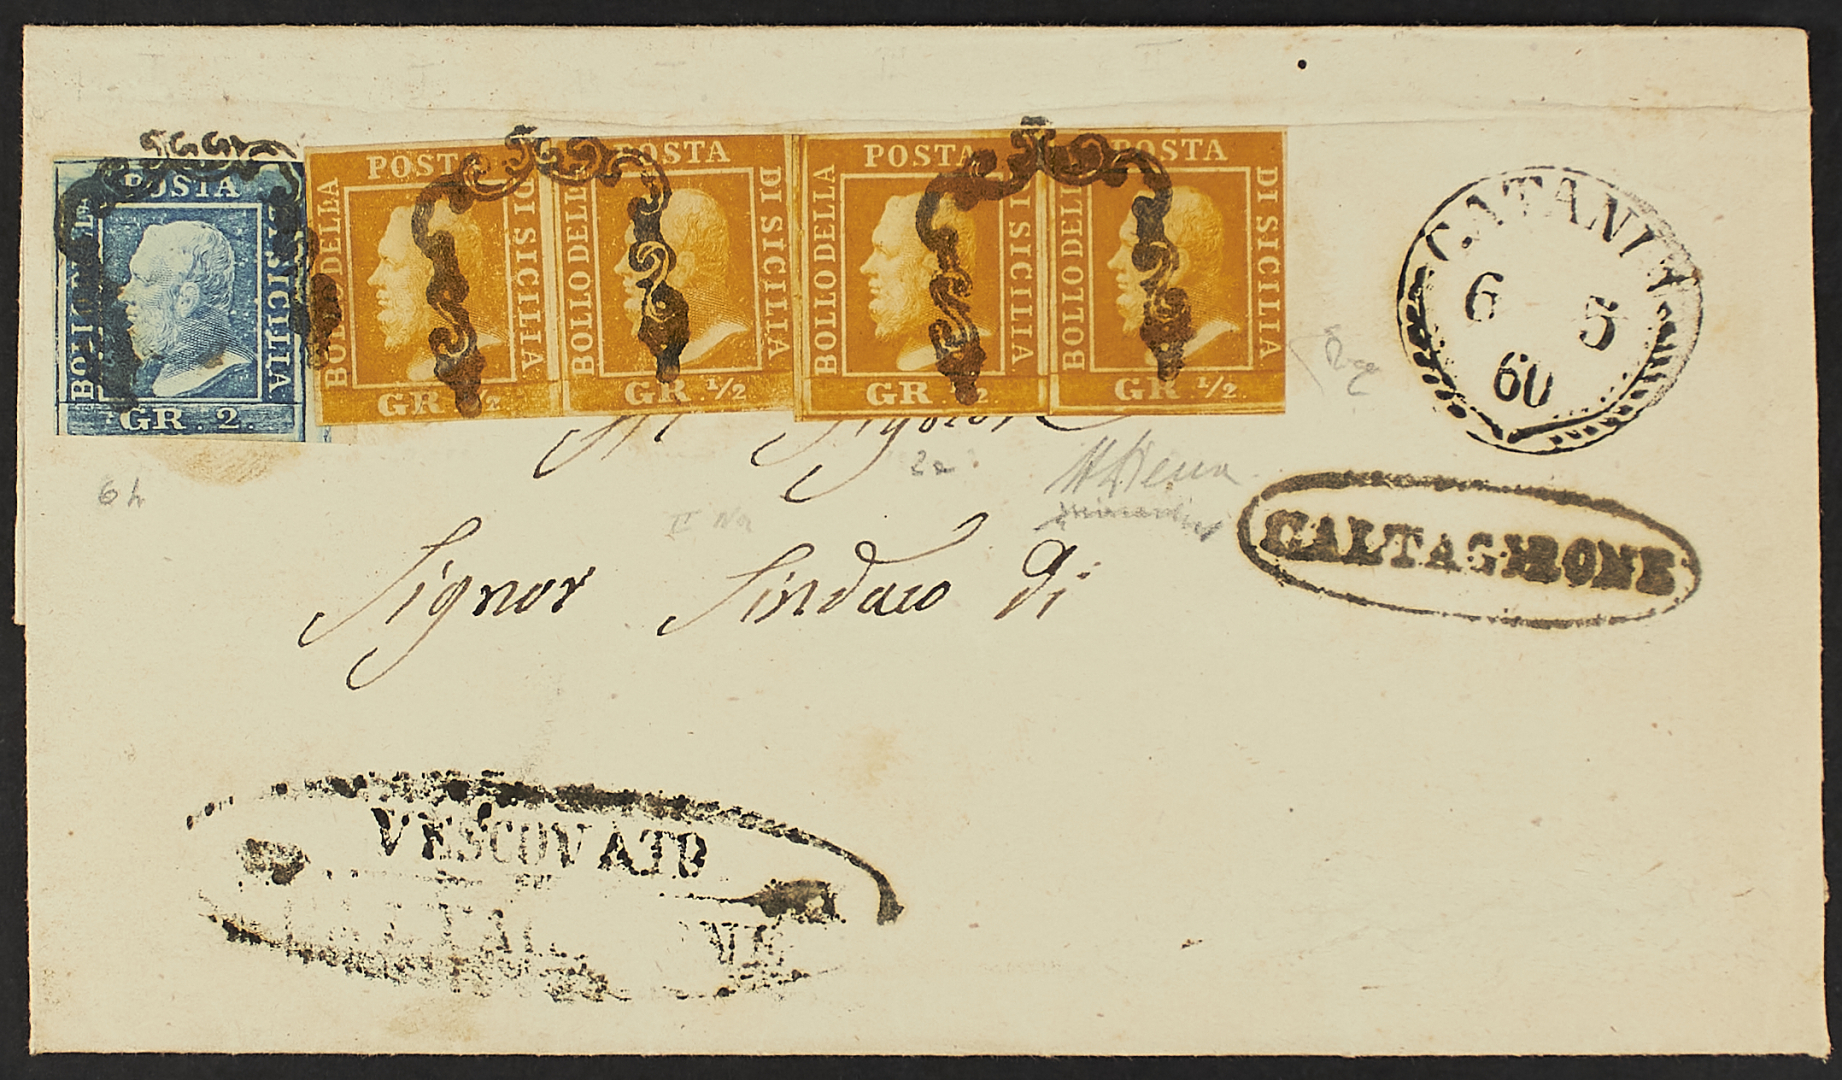 POSTA
BOLLO DELLA
DI SICILIA
GR. 2.
POSTA
BOLLO DELLA
DI SICILIA
GR. 1/2
POSTA
BOLLO DELLA
DI SICILIA
GR. 1/2
POSTA
BOLLO DELLA
DI SICILIA
GR. 1/2.
POSTA
BOLLO DELLA
DI SICILIA
GR. 1/2
CATANIA
6 5
60
6 h
2a
II Na
CALTAGIRONE
Signor Sindaco di
VESCOVATO